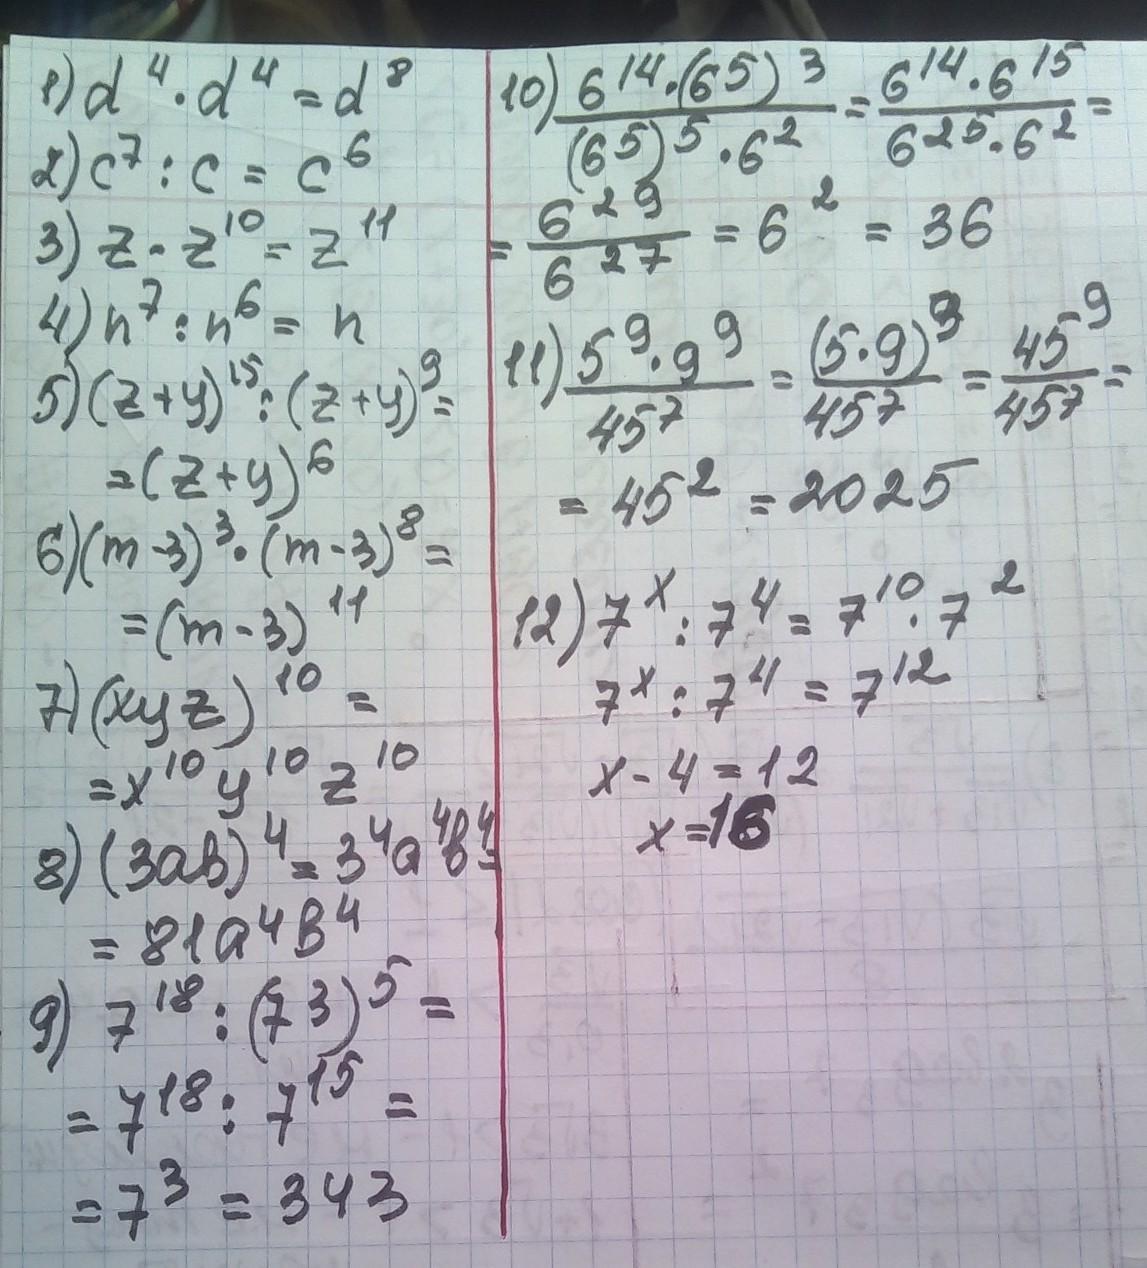 1) d⁴ · d⁴ = d⁸
2) c⁷ : c = c⁶
3) z · z¹⁰ = z¹¹
4) n⁷ : n⁶ = n
5) (z+y)¹⁵ : (z+y)⁹ =
= (z+y)⁶
6) (m-3)³ · (m-3)⁸ =
= (m-3)¹¹
7) (xyz)¹⁰ =
= x¹⁰ y¹⁰ z¹⁰
8) (3ab)⁴ = 3⁴a⁴b⁴ =
= 81a⁴b⁴
9) 7¹⁸ : (7³)⁵ =
= 7¹⁸ : 7¹⁵ =
= 7³ = 343
10) 6¹⁴ · (6⁵)³ / (6⁵)⁵ · 6² = 6¹⁴ · 6¹⁵ / 6²⁵ · 6² =
= 6²⁹ / 6²⁷ = 6² = 36
11) 5⁹ · 9⁹ / 45⁷ = (5·9)⁹ / 45⁷ = 45⁹ / 45⁷ =
= 45² = 2025
12) 7ˣ : 7⁴ = 7¹⁰ · 7²
7ˣ : 7⁴ = 7¹²
x - 4 = 12
x = 16